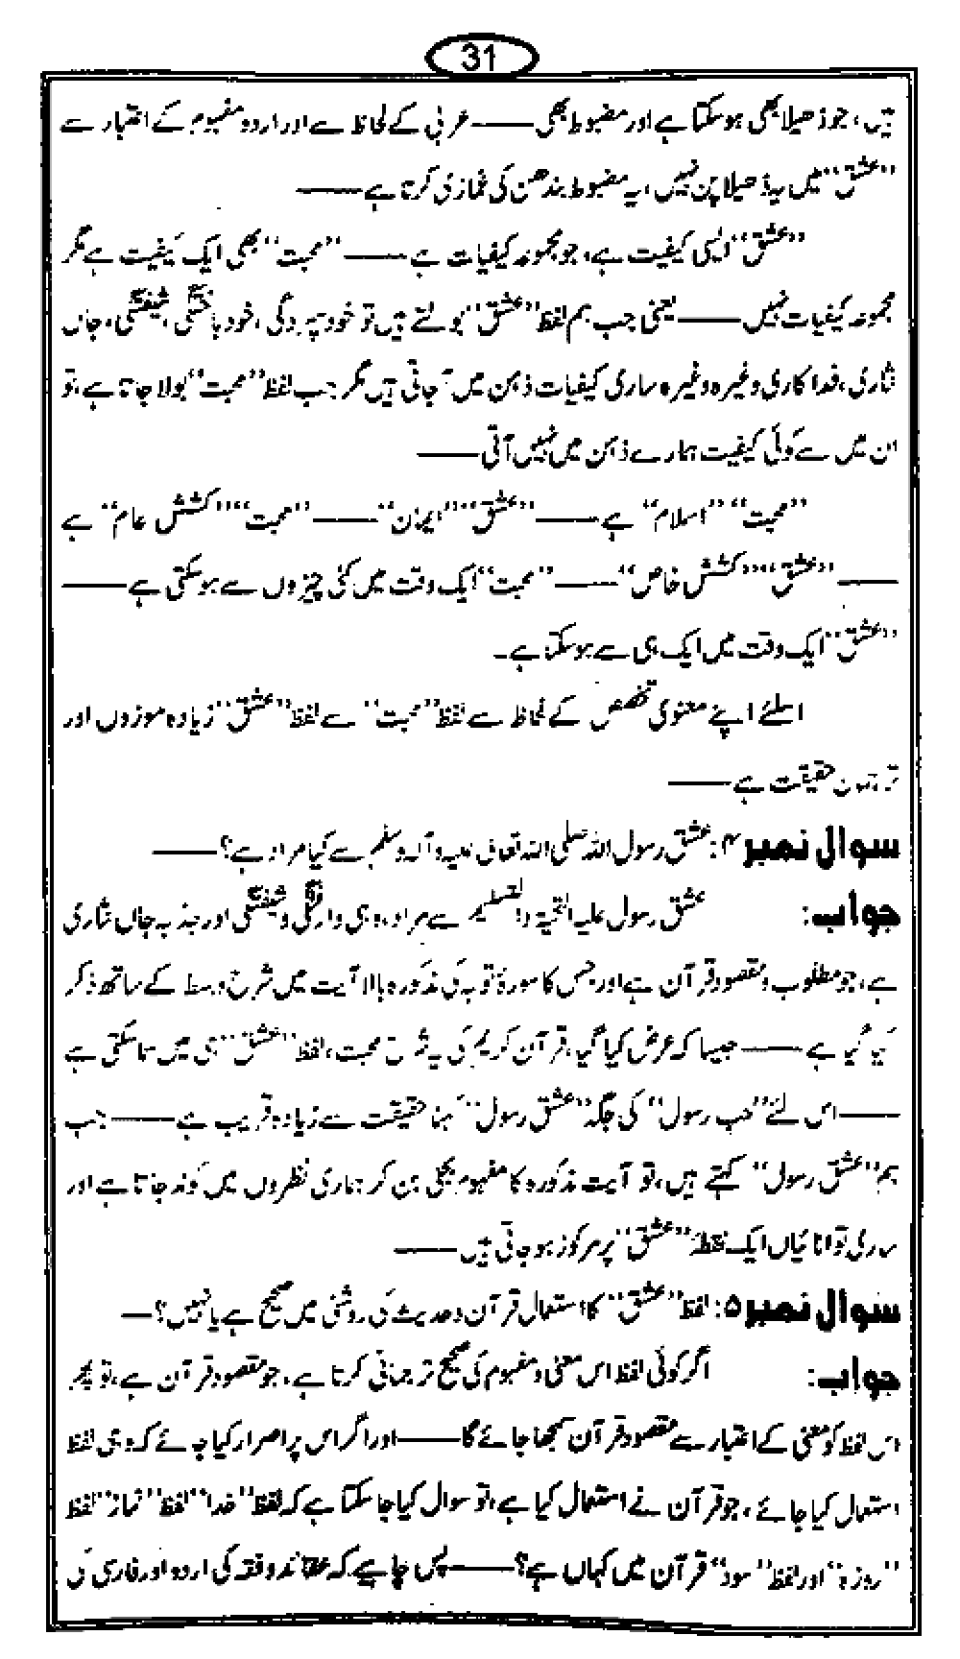 31
ہیں، جو ڈھیلا بھی ہو سکتا ہے اور مضبوط بھی ——— عربی کے لحاظ سے اور اردو مفہوم کے اعتبار سے
"عشق" میں یہ ڈھیلا پن نہیں، یہ مضبوط بندھن کی غمازی کرتا ہے ———
"عشق" ایسی کیفیت ہے، جو مجموعہ کیفیات ہے ——— "محبت" بھی ایک کیفیت ہے مگر
مجموعہ کیفیات نہیں ——— یعنی جب ہم لفظ "عشق" بولتے ہیں تو خود سپردگی، خود باختگی، شیفتگی، جاں
نثاری، فداکاری وغیرہ وغیرہ ساری کیفیات ذہن میں آ جاتی ہیں مگر جب لفظ "محبت" بولا جاتا ہے، تو
ان میں سے کوئی کیفیت ہمارے ذہن میں نہیں آتی ———
"محبت" "اسلام" ہے ——— "عشق" "ایمان" ——— "محبت" "کشش عام" ہے
——— "عشق" "کشش خاص" ——— "محبت" ایک وقت میں کئی چیزوں سے ہو سکتی ہے ———
"عشق" ایک وقت میں ایک ہی سے ہو سکتا ہے۔
اسلئے اپنے معنوی تخصص کے لحاظ سے لفظ "محبت" سے لفظ "عشق" زیادہ موزوں اور
ترجمان حقیقت ہے ———
سوال نمبر ۴: عشق رسول اللہ صلی اللہ تعالیٰ علیہ وآلہ وسلم سے کیا مراد ہے؟ ———
جواب: عشق رسول علیہ التحیۃ والتسلیم سے مراد، وہی وارفتگی و شیفتگی اور جذبہ جاں نثاری
ہے، جو مطلوب و مقصود قرآن ہے اور جس کا سورۃ توبہ کی مذکورہ بالا آیت میں شرح و بسط کے ساتھ ذکر
کیا گیا ہے ——— جیسا کہ عرض کیا گیا، قرآن کریم کی یہ شرح محبت، لفظ "عشق" ہی میں سما سکتی ہے
——— اس لئے "حب رسول" کی جگہ "عشق رسول" کہنا حقیقت سے زیادہ قریب ہے ——— جب
ہم "عشق رسول" کہتے ہیں، تو آیت مذکورہ کا مفہوم بجلی بن کر ہماری نظروں میں کوند جاتا ہے اور
ساری توانائیاں ایک نقطہ "عشق" پر مرکوز ہو جاتی ہیں ———
سوال نمبر ۵: لفظ "عشق" کا استعمال قرآن و حدیث کی روشنی میں صحیح ہے یا نہیں؟ —
جواب: اگر کوئی لفظ اس معنی و مفہوم کی صحیح ترجمانی کرتا ہے، جو مقصود قرآن ہے، تو پھر
اس لفظ کو معنی کے اعتبار سے مقصود قرآن سمجھا جائے گا ——— اور اگر اس پر اصرار کیا جائے کہ وہی لفظ
استعمال کیا جائے، جو قرآن نے استعمال کیا ہے، تو سوال کیا جا سکتا ہے کہ لفظ "خدا" لفظ "نماز" لفظ
"روزہ" اور لفظ "سود" قرآن میں کہاں ہے؟ ——— پس چاہیے کہ عقائد و فقہ کی اردو اور فارسی کی